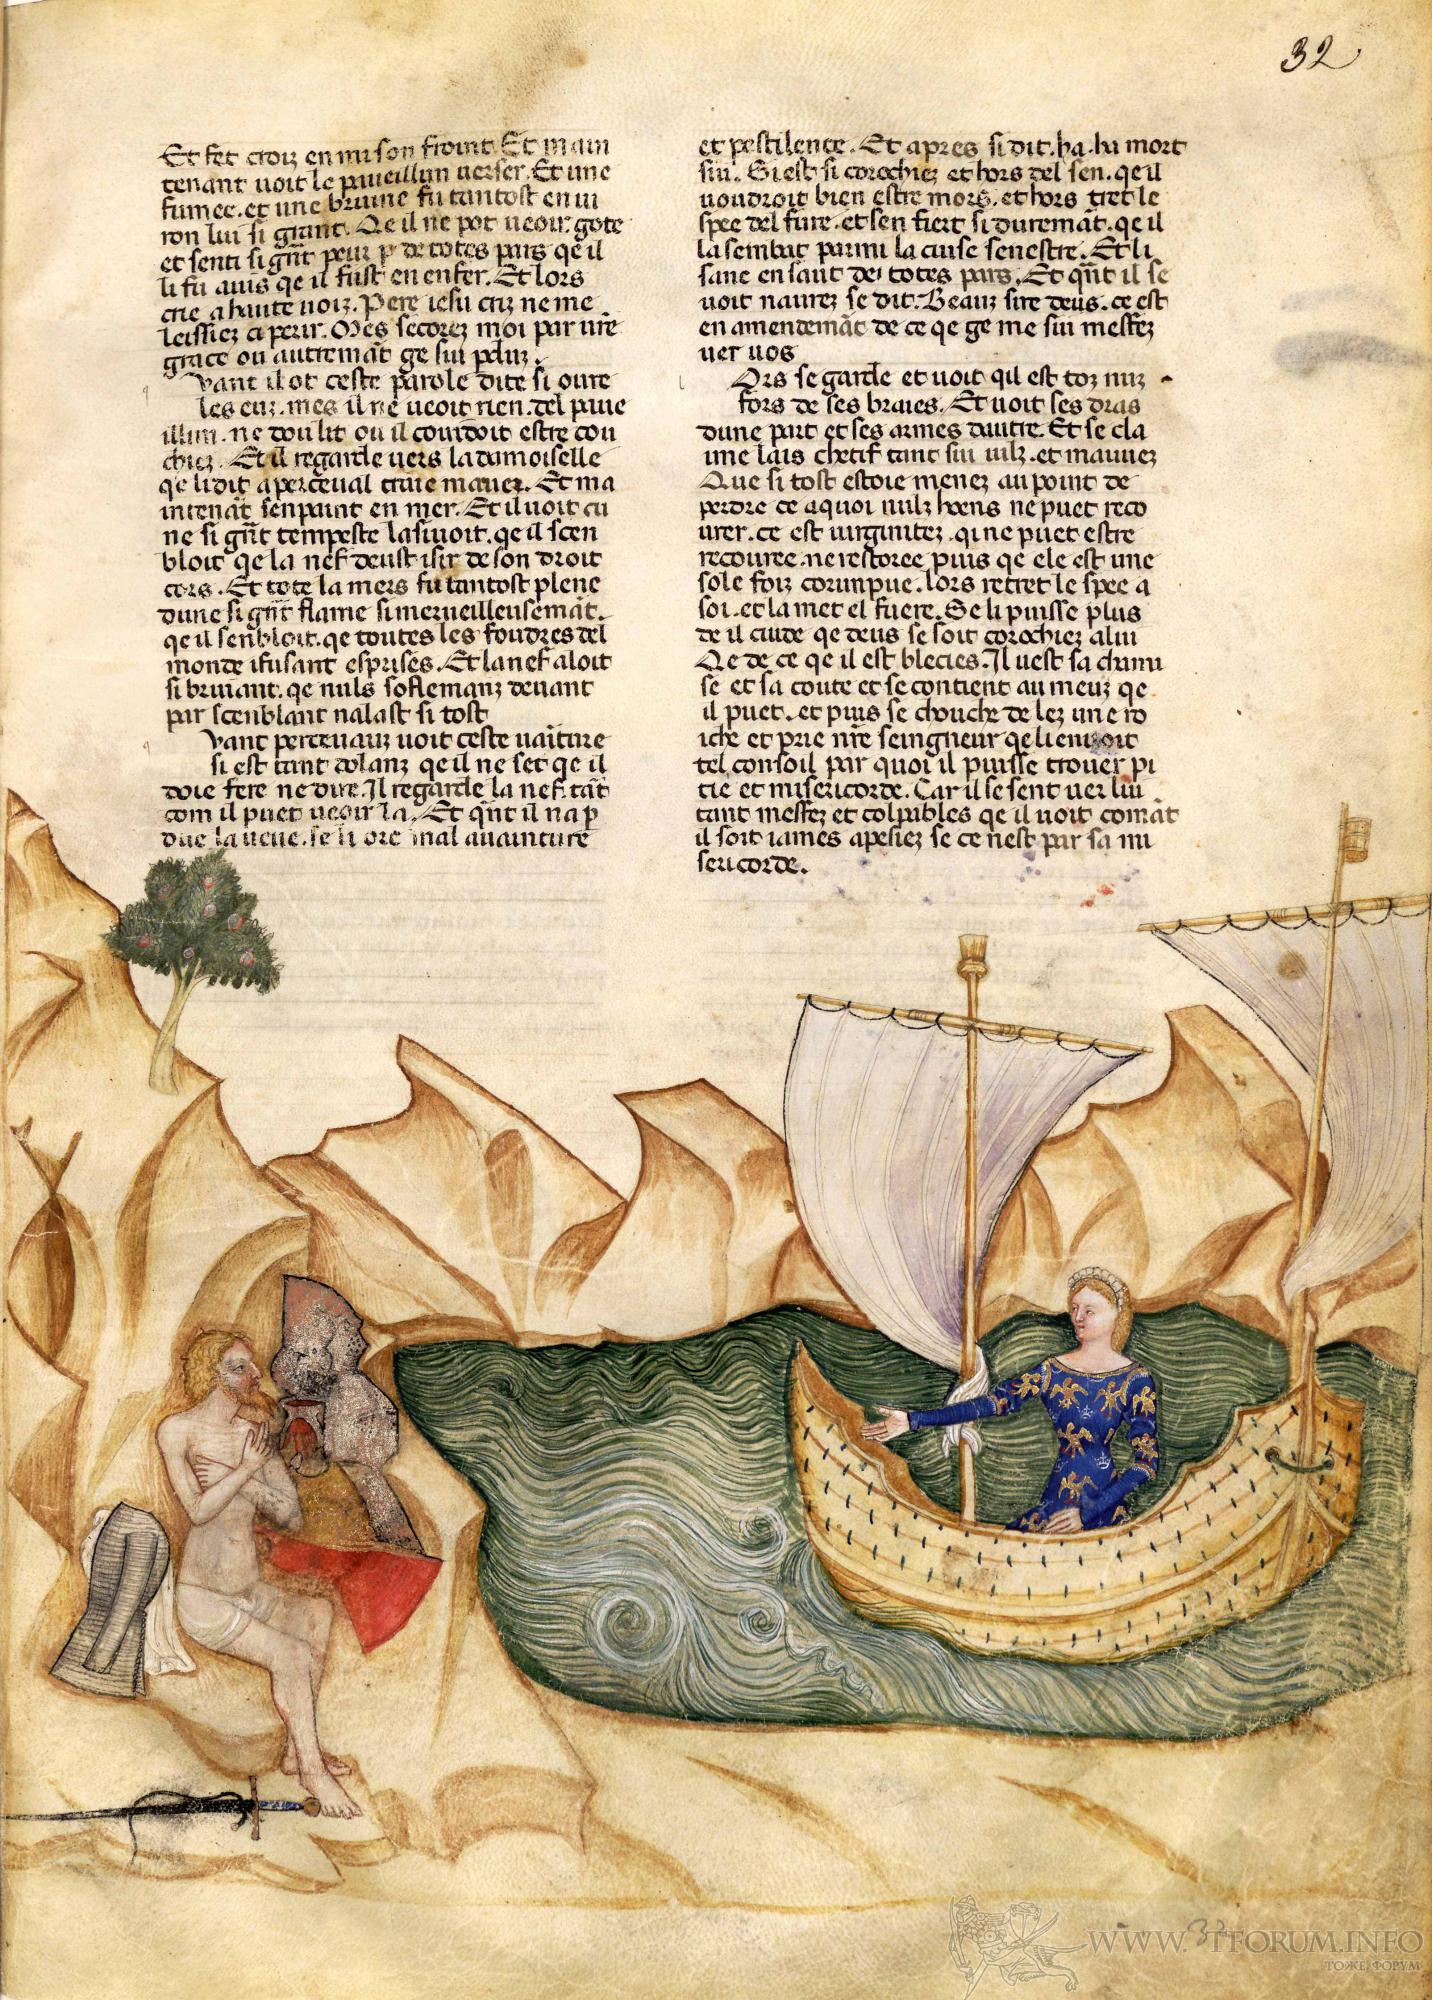 32
Et fet croiz en mi son front. Et main
tenant uoit le paueillun uerser. Et une
fumee. et une bruine fu tantost en ui
ron lui si grant. Qe il ne pot ueoir gote
et senti si gñt peur p̲ de totes pars qe il
li fu auis qe il fust en enfer. Et lors
crie a haute uoiz. Pere iesu criz ne me
leissiez ci perir. Mes secorez moi par ur̃e
grace ou autremãt ge sui pduz.
vant il ot ceste parole dite si oure
les euz. mes il ne ueoit rien. del paue
illun. ne dou lit ou il couidoit estre cou
chiez. Et il regarde uers la damoiselle
qe li dit a perceual traie mauez. Et ma
intenãt senpaint en mer. Et il uoit cu
ne si gñt tempeste la siuoit. qe il scen
bloit qe la nef deust isir de son droit
cors. Et tote la mers fu tantost plene
dune si gñt flame si merueilleusemãt.
qe il senbloit. qe toutes les foudres del
monde ifusant esprises. Et la nef aloit
si bruiant. qe nuls soflemanz deuant
par scenblant nalast si tost
vant perceuaux uoit ceste uaĩture
si est tant dolanz qe il ne set qe il
doie fere ne dire. Il regarde la nef. tãt
com il puet ueoir la. Et qñt il na p
due la ueue. se li ore mal auainture
et pestilence. Et apres si dit. ha. ha mort
sui. Si est si corochiez et hors del sen. qe il
uoudroit bien estre mors. et hors tret le
spee del fure. et sen fiert si duremãt. qe il
la sembat parmi la cuise senestre. Et li
sanc en saut de totes pars. Et qñt il se
uoit naurez se dit. Beauz sire deus. ce est
en amendemãt de ce qe ge me sui meffez
uer uos
Ors se garde et uoit qil est toz nuz
fors de ses braies. Et uoit ses dras
dune part et ses armes dautre. Et se cla
ime lais chetif tant sui uilz. et mauuez
Que si tost estoie menez au point de
perdre ce a quoi nulz hoens ne puet reco
urer. ce est uirginitez. qi ne puet estre
recouree. ne restoree puis qe ele est une
sole foiz corunpue. lors retret le spee a
soi. et la met el fuere. Se li puisse plus
de il cuide qe deus se soit corochiez a lui
Qe de ce qe il est blecies. Il uest sa chimi
se et sa coute et se contient au meuz qe
il puet. et puis se chouche de lez une ro
iche et prie nr̃e seingneur qe li enuoit
tel consoil par quoi il puisse trouer pi
tie et misericorde. Car il se sent uer lui
tant meffez et colpables qe il uoit comãt
il soit iames apesiez se ce nest par sa mi
sericorde.
WWW.TFORUM.INFO
ТОЖЕ ФОРУМ